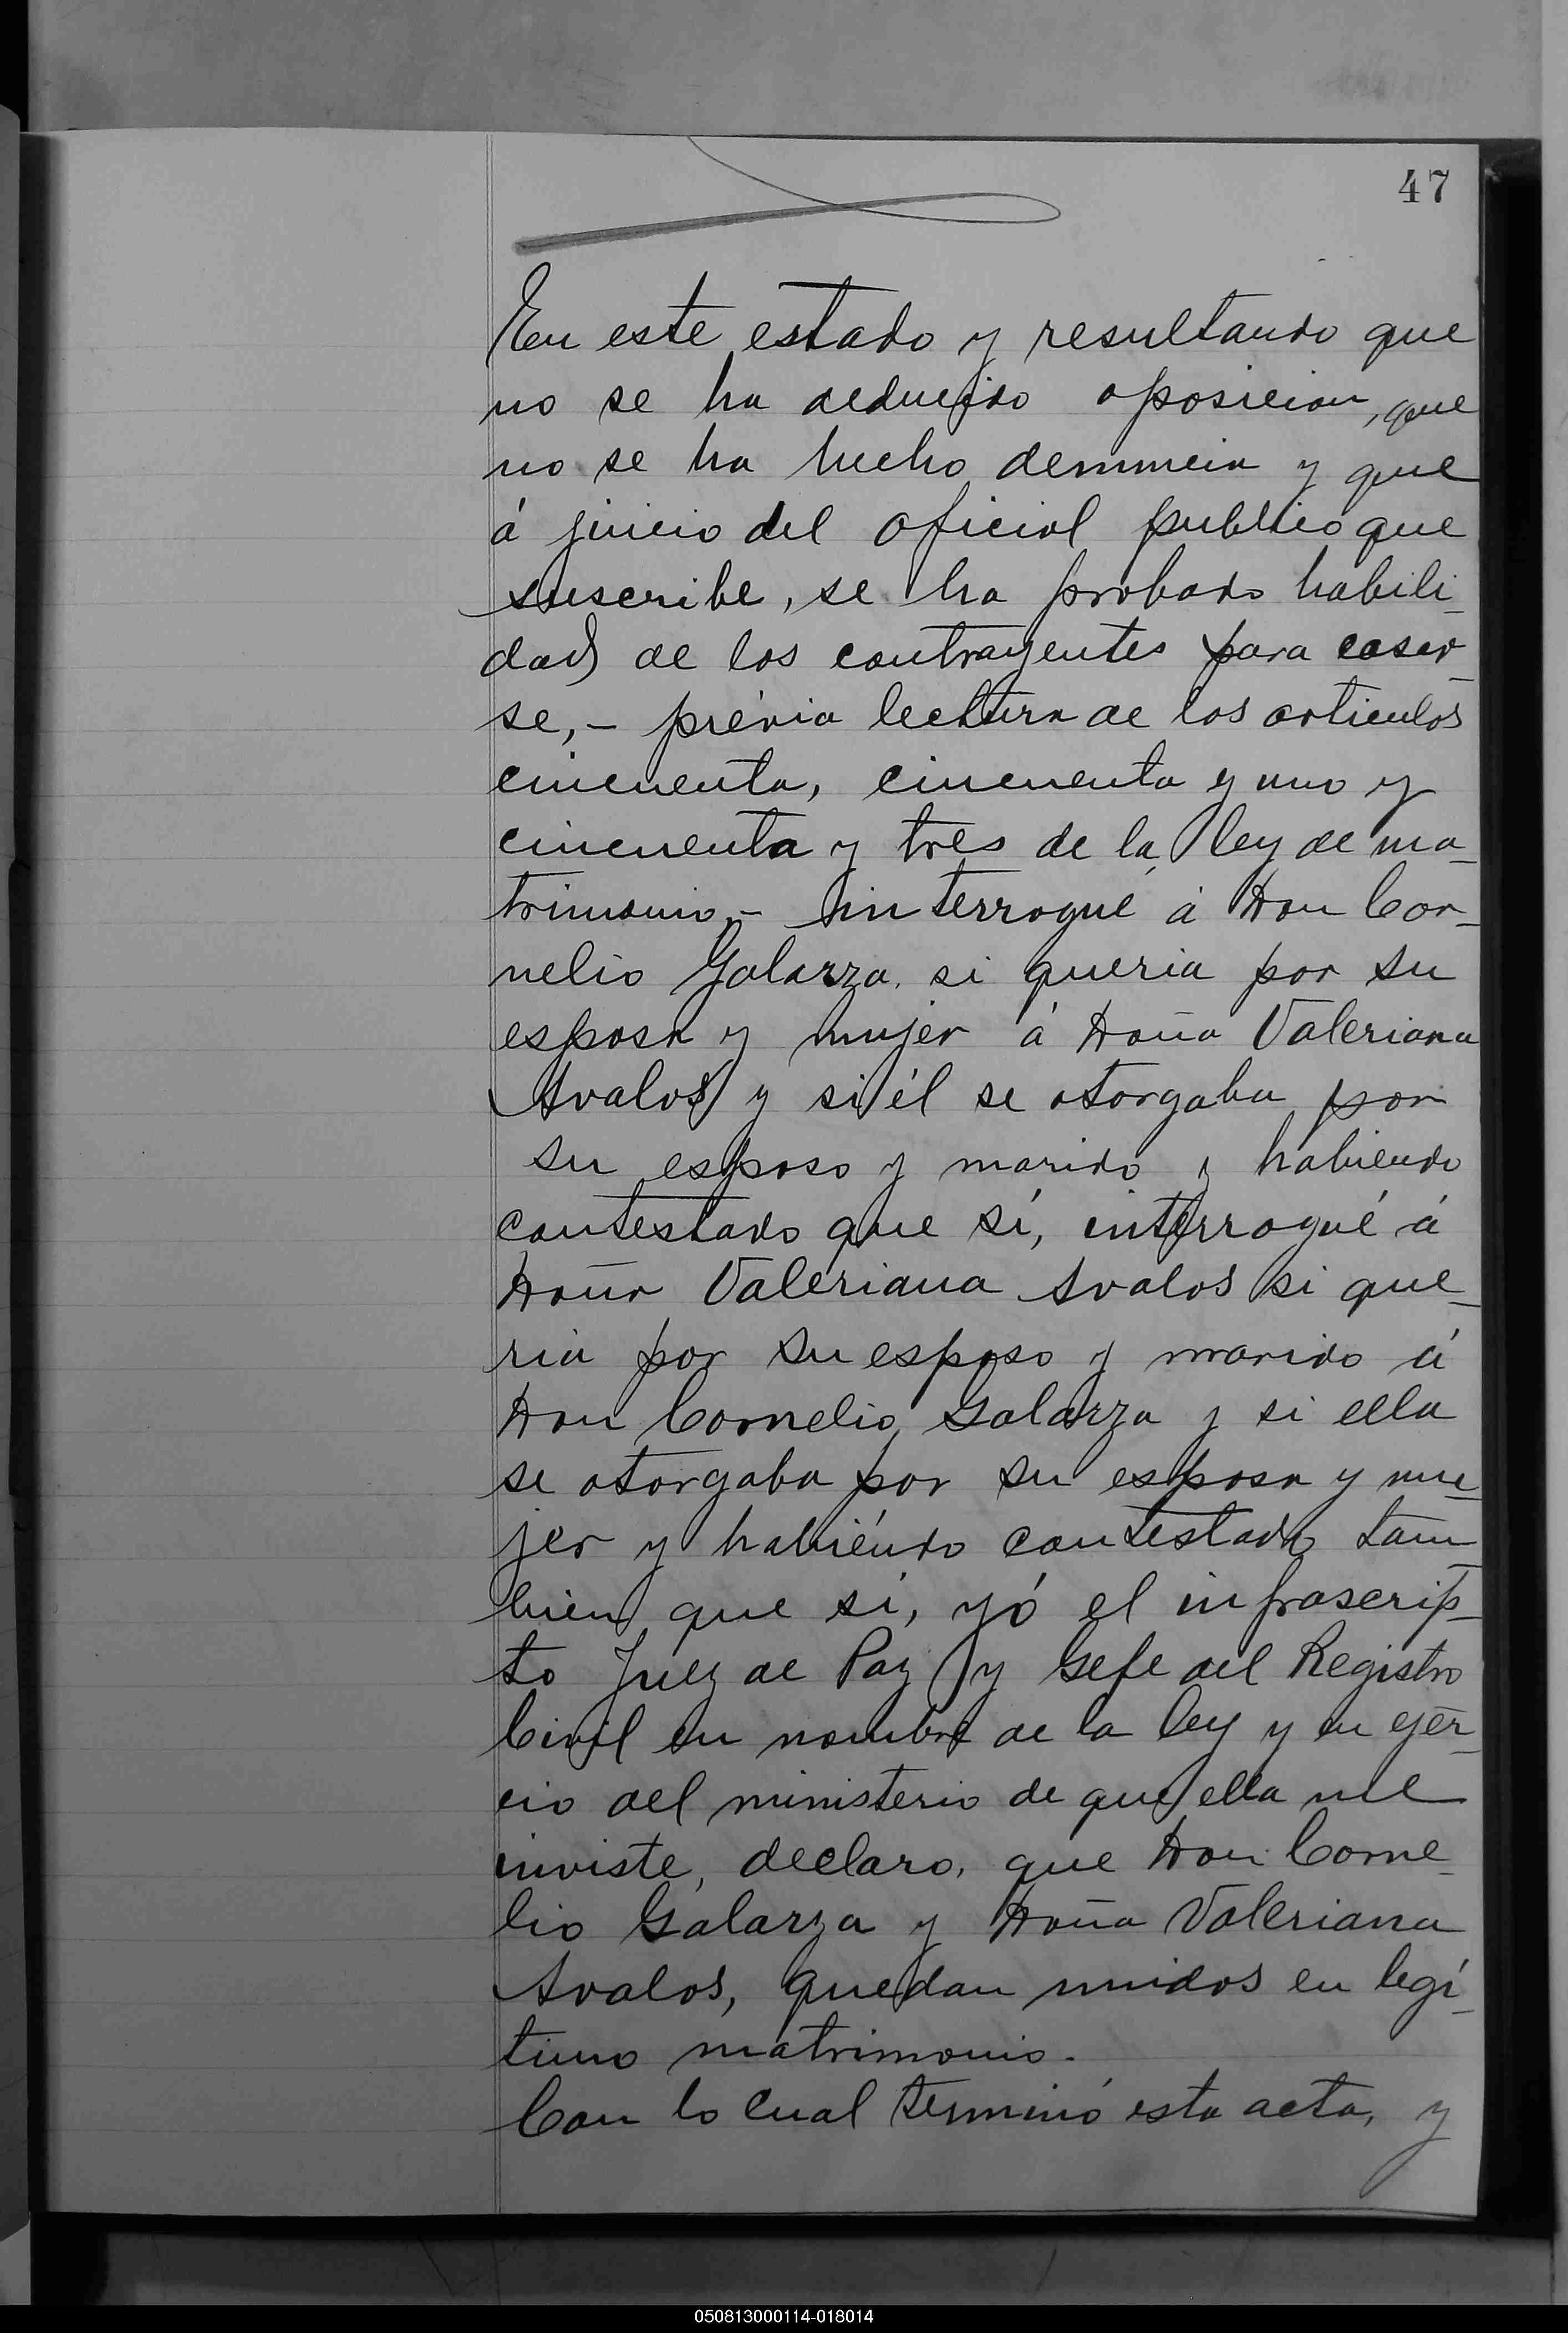 47
En este estado y resultando que
no se ha deducido oposicion, que
no se ha hecho denuncia y que
á juicio del oficial publico que
suscribe, se ha probado habili-
dad de los contrayentes para casar-
se, - prévia lectura de los articulos
cincuenta, cincuenta y uno y
cincuenta y tres de la ley de ma-
trimonio, - interrogué á Don Cor-
nelio Galarza, si queria por su
esposa y mujer á Doña Valeriana
Avalos y si él se otorgaba por
su esposo y marido y habiendo
contestado que sí, interrogué á
Doña Valeriana Avalos si que-
ria por su esposo y marido á
Don Cornelio Galarza y si ella
se otorgaba por su esposa y mu-
jer y habiéndo contestado tam-
bien que sí, yó el infrascrip-
to Juez de Paz y Gefe del Registro
Civil en nombre de la ley y en ejer-
cio del ministerio de que ella me
inviste, declaro, que Don Corne-
lio Galarza y Doña Valeriana
Avalos, quedan unidos en legí-
timo matrimonio.
Con lo cual terminó esta acta, y
050813000114-018014